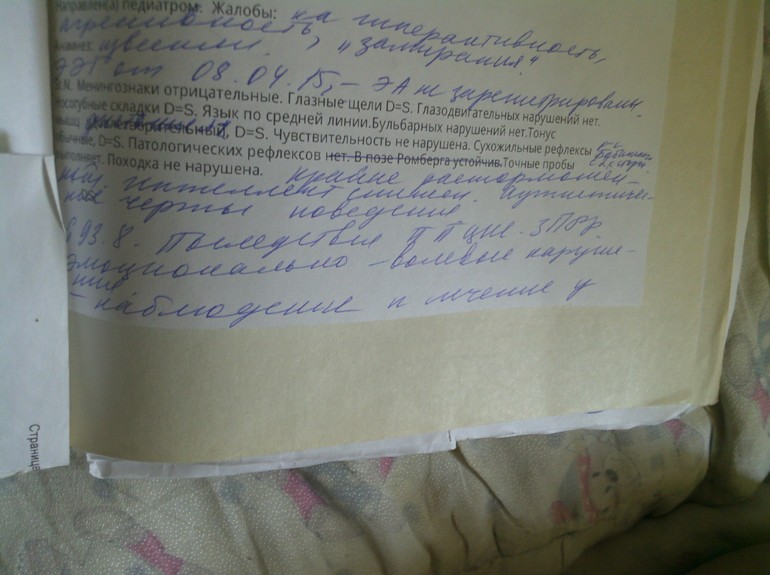 Направлен(а) педиатром. Жалобы: на гиперактивность,
агрессивность, "замирания"
Анамнез: известен.
ЭЭГ от 08.04.15, - ЭА не зарегистрирована.
St.N. Менингознаки отрицательные. Глазные щели D=S. Глазодвигательных нарушений нет.
Носогубные складки D=S. Язык по средней линии.Бульбарных нарушений нет.Тонус
мышц удовлетворительный, D=S. Чувствительность не нарушена. Сухожильные рефлексы
обычные, D=S. Патологических рефлексов нет. В позе Ромберга устойчив.Точные пробы
с-м Бабинского
выполняет. Походка не нарушена.
крайне расторможен-
ный интеллект снижен. Аутистичес-
кие черты поведения
G 93.8. Последствия ПП ЦНС. ЗПРР.
Эмоционально - волевые наруше-
ния
- наблюдение и лечение у
Страница